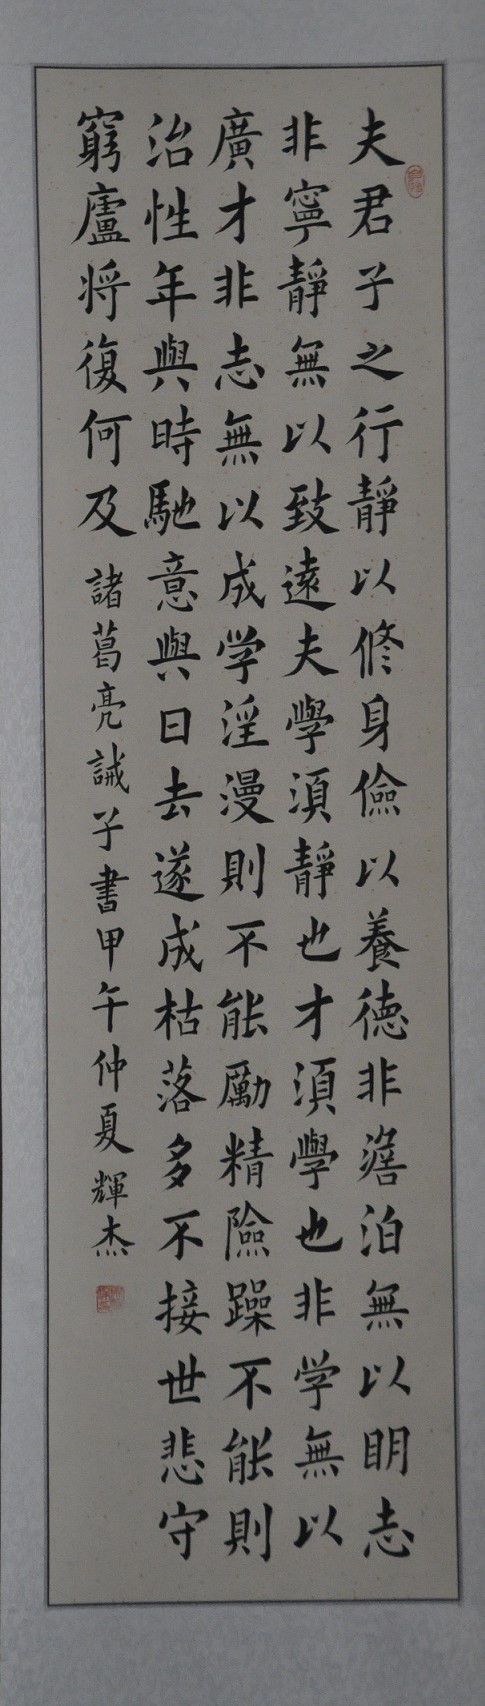 夫君子之行靜以修身儉以養徳非澹泊無以眀志
非寧靜無以致遠夫學湏靜也才湏學也非学無以
廣才非志無以成学淫漫則不能勵精險躁不能則
治性年與時馳意與日去遂成枯落多不接世悲守
窮廬将復何及 諸葛亮誡子書甲午仲夏輝杰